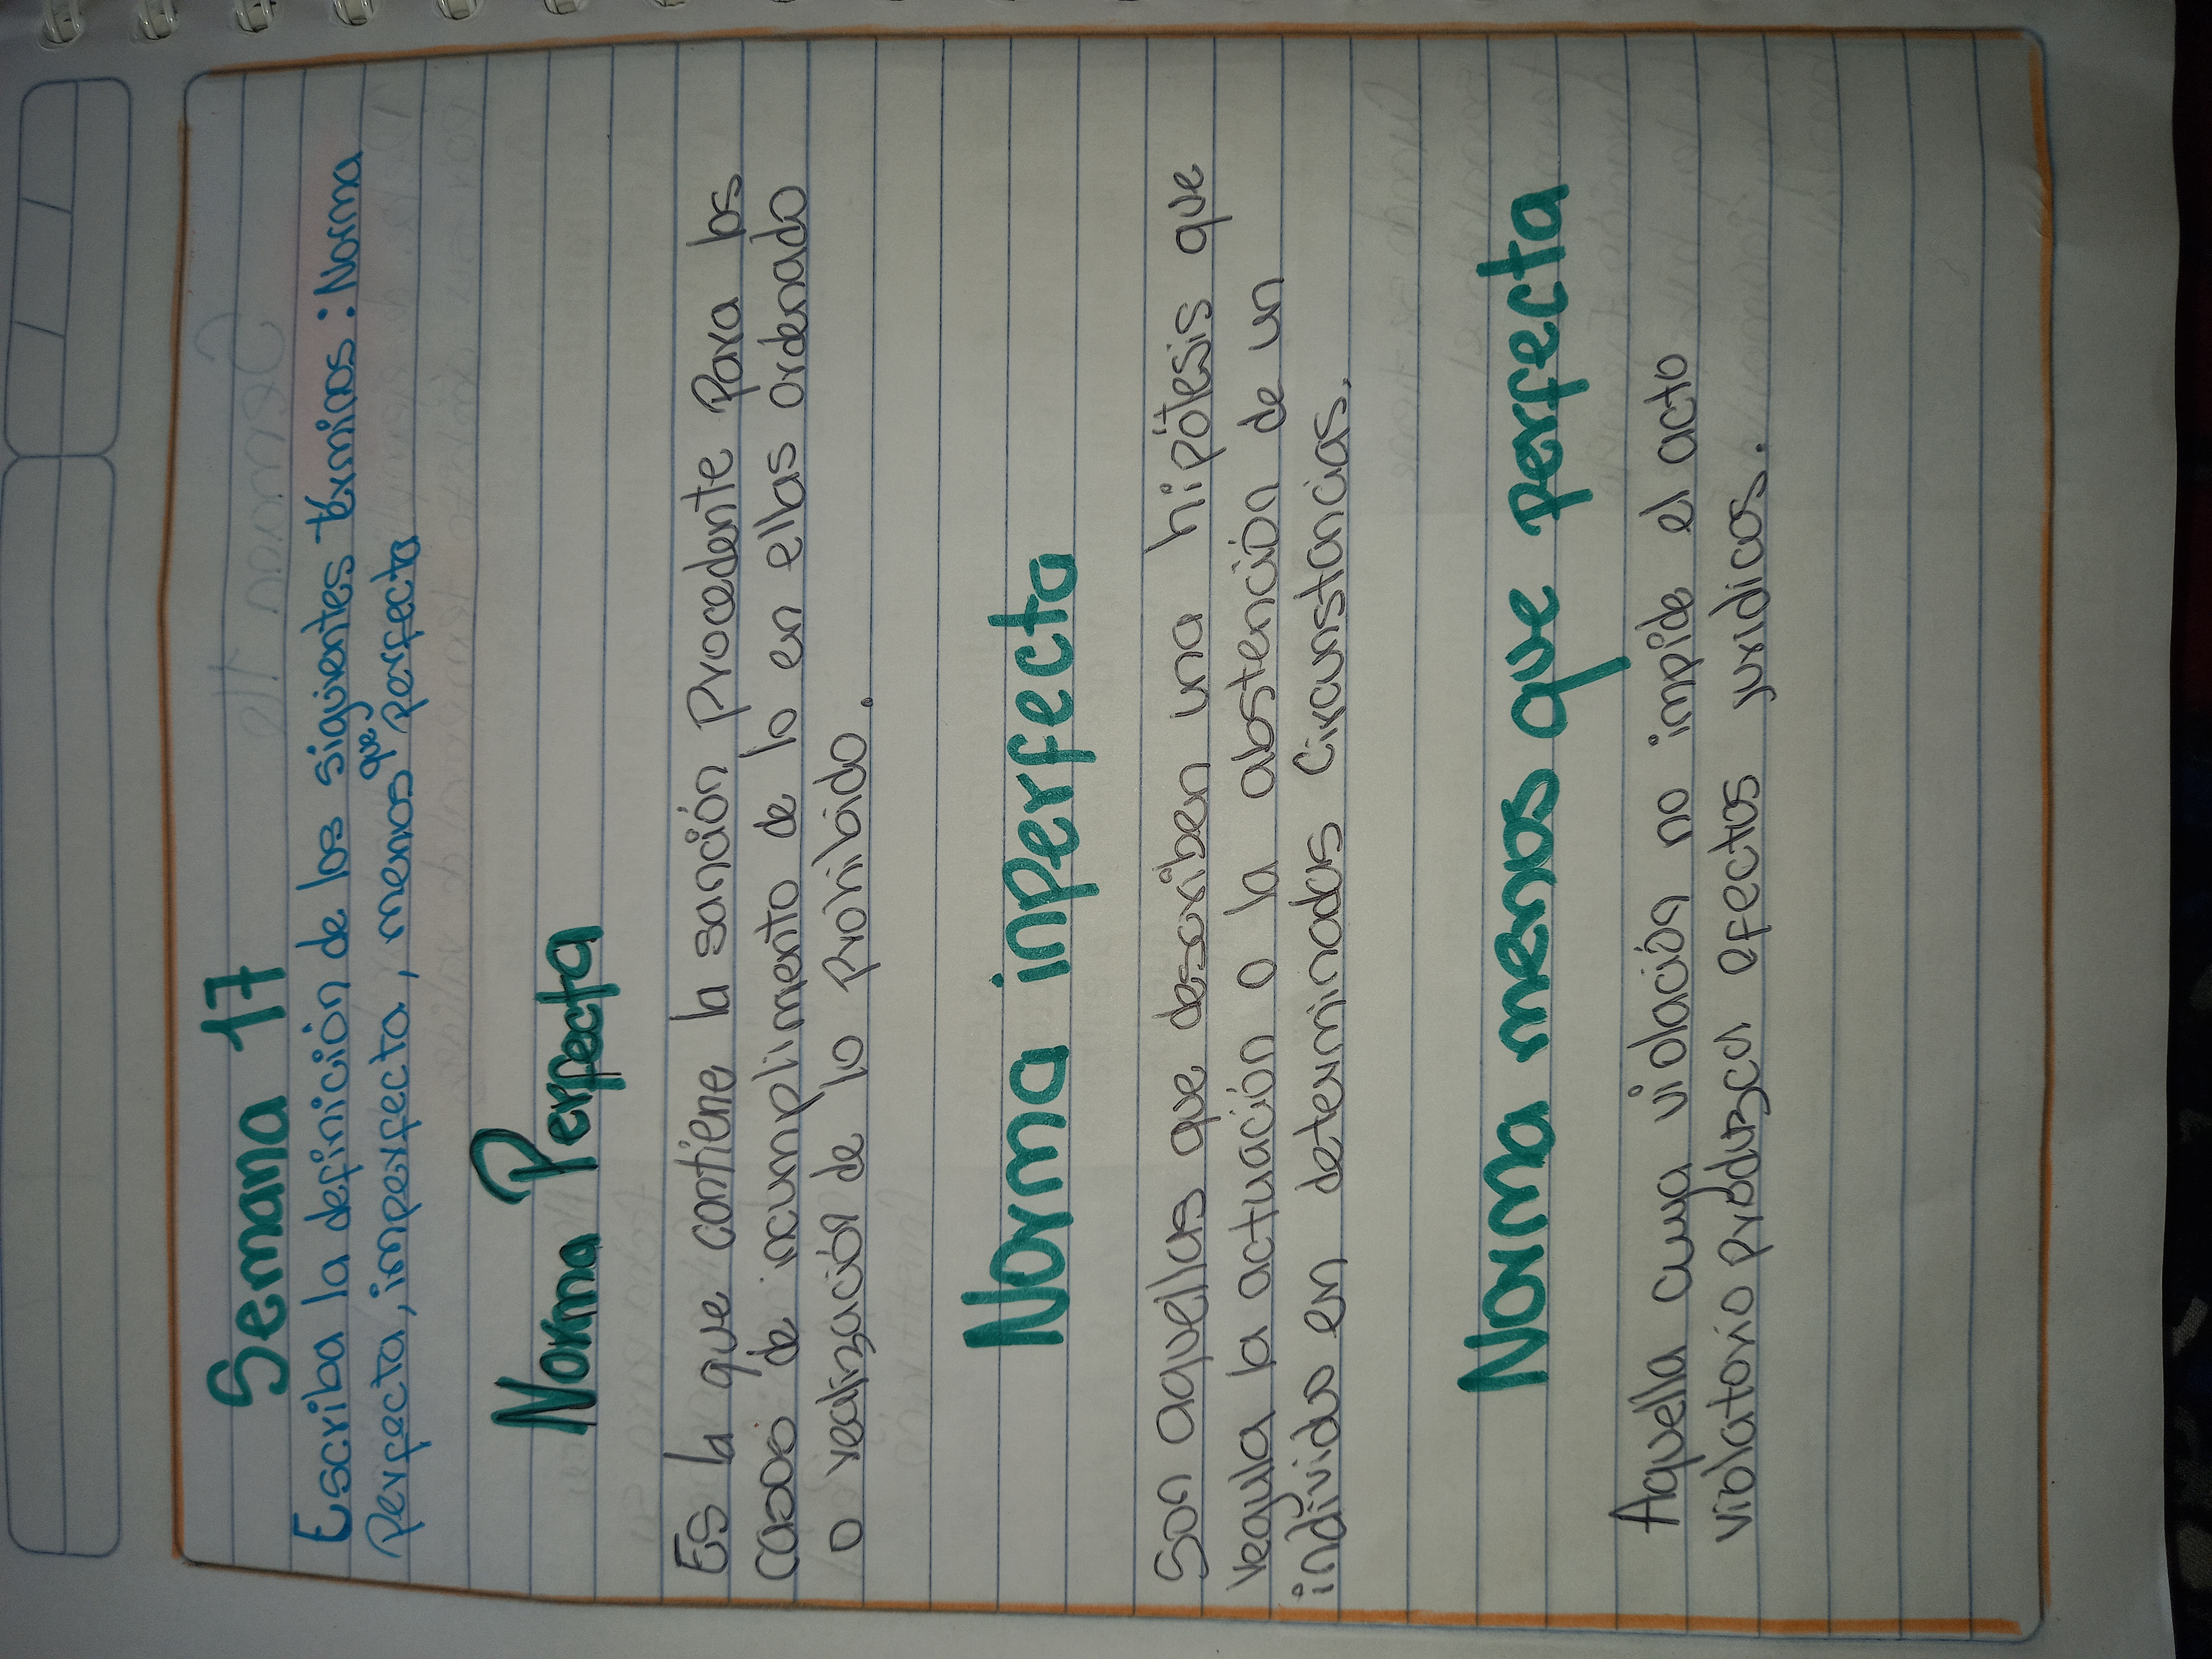 Semana 17
Escriba la definición de los siguientes términos: Norma
perfecta, imperfecta, menos que perfecta
Norma Perfecta
Es la que contiene la sanción Procedente Para los
casos de incumplimento de lo en ellas ordenado
o realización de lo Prohibido.
Norma inperfecta
Son aquellas que describen una hipótesis que
regula la actuación o la abstención de un
individuo en determinadas circunstancias.
Norma menos que perfecta
Aquella cuya violación no impide el acto
violatorio produzca efectos juridicos.